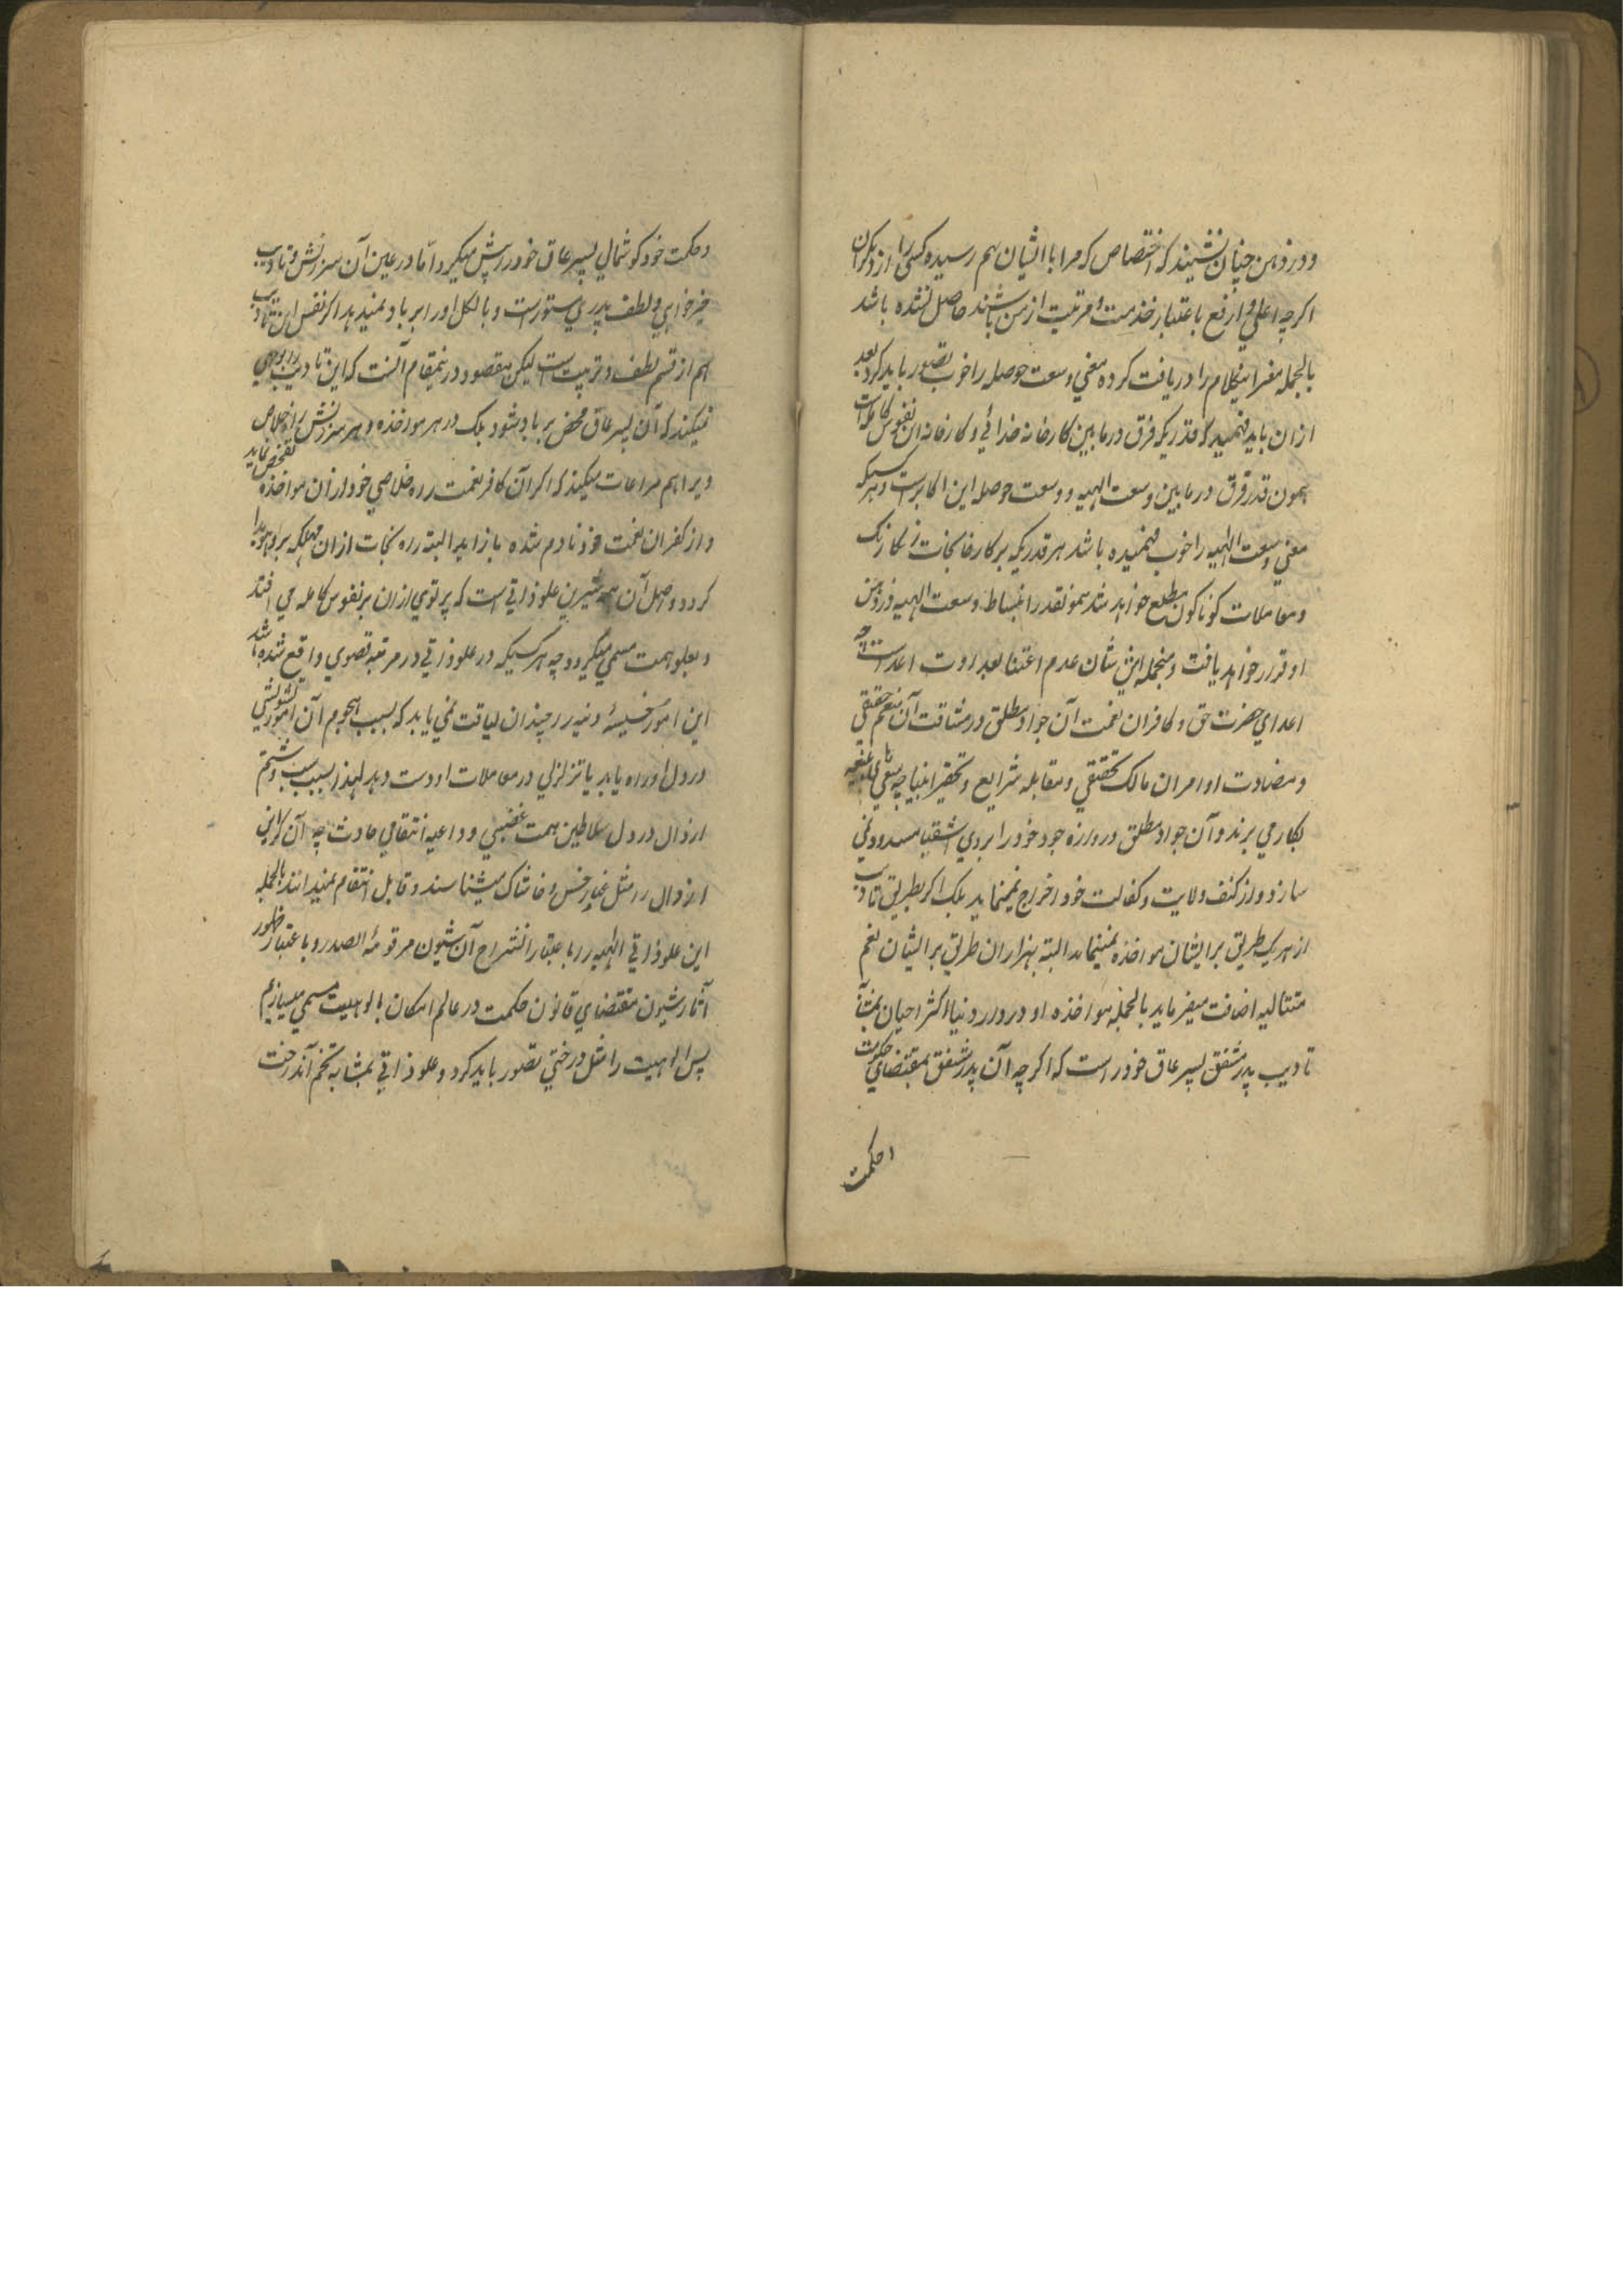 ودر ذهن چنان نشیند که اختصاص که مرا با ایشان بهم رسیده کسی را از دیگران
اگرچه اعلی و ارفع باعتبار خدمت و مرتبت از من باشند حاصل نشده باشد
بالجمله مغز اینکلام را دریافت کرده معنی وسعت حوصله را خوب تصور باید کرد بعد
ازان باید فهمید که قدریکه فرق در مابین کارخانه خدائی و کارخانه این نفوس کامله است
همون قدر فرق در مابین وسعت الهیه و وسعت حوصله این اکابر است و هرکسیکه
معنی وسعت الهیه را خوب فهمیده باشد هر قدریکه بر کارخانجات رنگارنگ
ومعاملات کوناکون مطلع خواهد شد همونقدر انبساط وسعت الهیه در ذهن
او قرار خواهد یافت و منجمله این شان عدم اعتنا بعداوت اعداست چه
اعدای حضرت حق و کافران نعمت آن جواد مطلق در مشاقت آن منعم حقیقی
ومضادت اوامر ان مالک تحقیقی و مقابله شرایع و تحقیر انبیا چه سعی های بلیغه
بکار می برند و آن جواد مطلق دروازه جود خود را بروی اشقیا مسدود نمی
سازد و از کنف ولایت و کفالت خود اخراج نمینماید بلک اگر بطریق تادیب
از هر یک طریق بر ایشان مواخذه مینماید البته بهزاران طریق بر ایشان نعم
متتالیه اضافت میفرماید بالجمله مواخذه او در دار دنیا اکثر احیان بمثابه
تادیب پدر مشفق پسر عاق خود را است که اگرچه آن پدر شفق بمقتضای حکومت
وحکمت
وحکمت خود کوشمالی پسر عاق خود در پیش میگیرد اما در عین آن سرزنش و تادیب
خیرخواهی و لطف پدری مستور است و بالکل اورا برباد نمیدهد اگر نفس این تادیب
هم از قسم لطف و تربیت است لیکن مقصود درینمقام آنست که این تادیب را بوجهی
نمیکند که آن پسر عاق محض برباد شود بلک در هر مواخذه و هر سرزنش راه خلاص
ویرا هم مراعات میکند که اگر آن کافر نعمت راه خلاصی خود ازان مواخذه تفحص نماید
و از کفران نعمت خود نادم شده باز آید البته راه نجات ازان مهلکه برو هویدا
کردد و اصل آن همه شیرین علو ذاتی است که پرتوی ازان بر نفوس کامله می افتد
وبعلو همت مسمی میگردد چه هر کسیکه در علو ذاتی در مرتبه قصوی واقع شده باشد
این امور خسیسه دنیه را چندان لیاقت نمی یابد که بسبب هجوم آن امور تشویشی
در دل او راه یابد یا تزلزلی در معاملات او دست دهد لهذا بسبب سب و شتم
ارذال در دل سلاطین همت غضبی و داعیه انتقامی حادث چه آن گرامی
ارذال را مثل غبار و خس و خاشاک میشناسند و قابل انتقام نمیدانند بالجمله
این علو ذاتی الهیه را باعتبار انشراح آن شیون مرقومة الصدر و باعتبار ظهور
آثار شیون مقتضای قانون حکمت در عالم امکان بالوهیت مسمی میسازیم
پس الوهیت را مثل درختی تصور باید کرد و علو ذاتی بمثابه تخم آندرخت